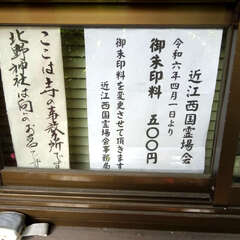 近江西国霊場会
令和六年四月一日より
御朱印料 五〇〇円
御朱印料を変更させて頂きます
近江西国霊場会事務局
ここは寺の事務所です
北野神社は向こうのお宮です